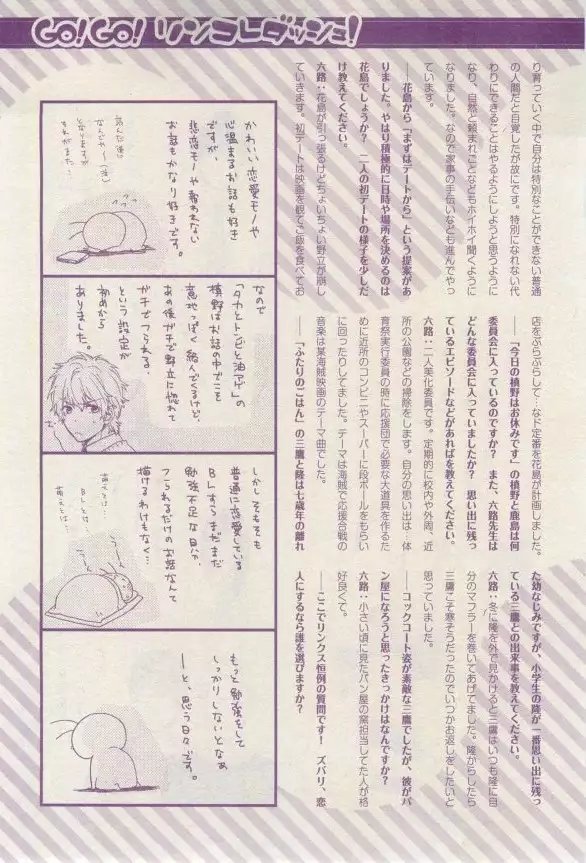 GO!GO! リンコレダッシュ!
り育っていく中で自分は特別なことができない普通
の人間だと自覚したが故にです。特別になれない代
わりにできることはやるようにしようと思うように
なり、自然と頼まれごとなどもホイホイ聞くように
なりました。なので家事の手伝いなども進んでやっ
ています。
――花島から「まずはデートから」という提案があ
りました。やはり積極的に日時や場所を決めるのは
花島でしょうか？　二人の初デートの様子を少しだ
け教えてください。
六路：花島が引っ張るけどちょいちょい野立が崩し
ていきます。初デートは映画を観てご飯を食べてお
店をぶらぶらして…など定番を花島が計画しました。
――「今日の槙野はお休みです」の槙野と鹿島は何
委員会に入っているのですか？　また、六路先生は
どんな委員会に入っていましたか？　思い出に残っ
ているエピソードなどがあればを教えてください。
六路：二人美化委員です。定期的に校内や外周、近
所の公園などの掃除をします。自分の思い出は…体
育祭実行委員の時に応援団で必要な大道具を作るた
めに近所のコンビニやスーパーに段ボールをもらい
に回ったりしてました。テーマは海賊で応援合戦の
音楽は某海賊映画のテーマ曲でした。
――「ふたりのごはん」の三鷹と隆は七歳年の離れ
た幼なじみですが、小学生の隆が一番思い出に残っ
ている三鷹との出来事を教えてください。
六路：冬に隆を外で見かけると三鷹はいつも隆に自
分のマフラーを巻いてあげてました。隆からしたら
三鷹こそ寒そうだったのでいつかお返しをしたいと
思っていました。
――コックコート姿が素敵な三鷹でしたが、彼がパ
ン屋になろうと思ったきっかけはなんですか？
六路：小さい頃に見たパン屋の窯担当してた人が格
好良くて。
――ここでリンクス恒例の質問です！　ズバリ、恋
人にするなら誰を選びますか？
かわいい恋愛モノや
心温まるお話も好き
ですが、
悲恋モノや報われない
お話もかなり好きです。
読んだ後に
なんでや～(泣)
となりますが
それがまた…
なので
「タカとトンビと油アゲ」の
槙野はお話の中でこそ
意地っぽく絡んでくるけど、
あの後ガチで野立に惚れて
ガチでフラれる、
という設定が
初めから
ありました。
しかしそもそも
普通に恋愛している
BLすらまだまだ
勉強不足な日々で、
フラれるだけのお話なんて
描けるわけもなく…
萌えとは…
BLとは…
萌えとは…
もっと勉強をして
しっかりしないとなあ
ーと、思う日々です。